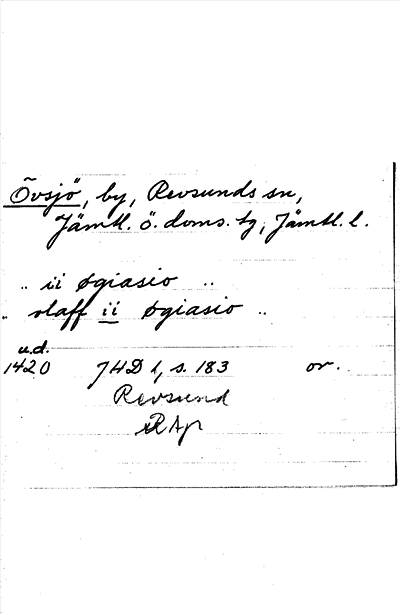 Övsjö, by, Revsunds sn,
Jämtl. ö. doms. tg, Jämtl. l.
.. ii øgiasio ..
.. olaff ii øgiasio ..
u.d.
1420 JHD 1, s. 183 or.
Revsund
RAp